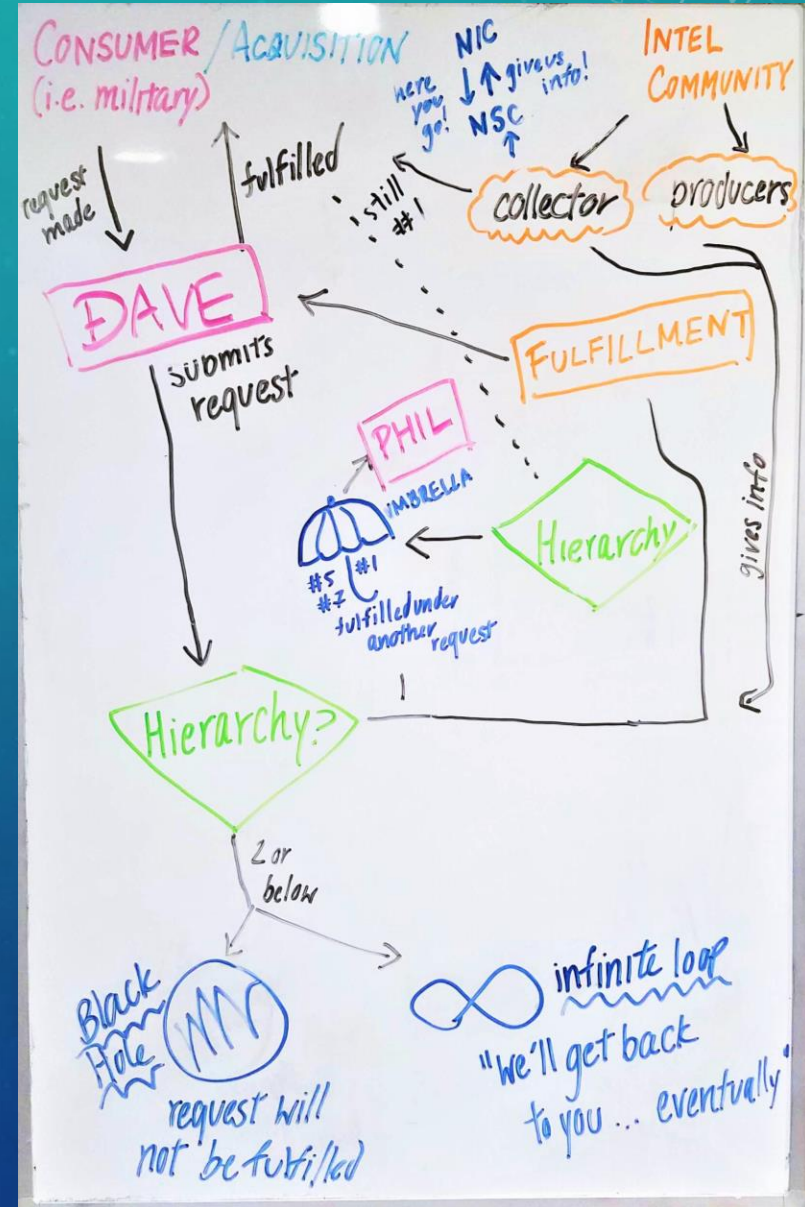 CONSUMER / ACQUISITION
(i.e. military)
NIC
here
you
go!
give us
info!
NSC
INTEL
COMMUNITY
request
made
fulfilled
still
#1
collector
producers
DAVE
submits
request
FULFILLMENT
PHIL
UMBRELLA
#5
#7
#1
fulfilled under
another
request
Hierarchy
gives info
Hierarchy?
1
2 or
below
Black
Hole
request will
not be fulfilled
infinite loop
"We'll get back
to you ... eventually"